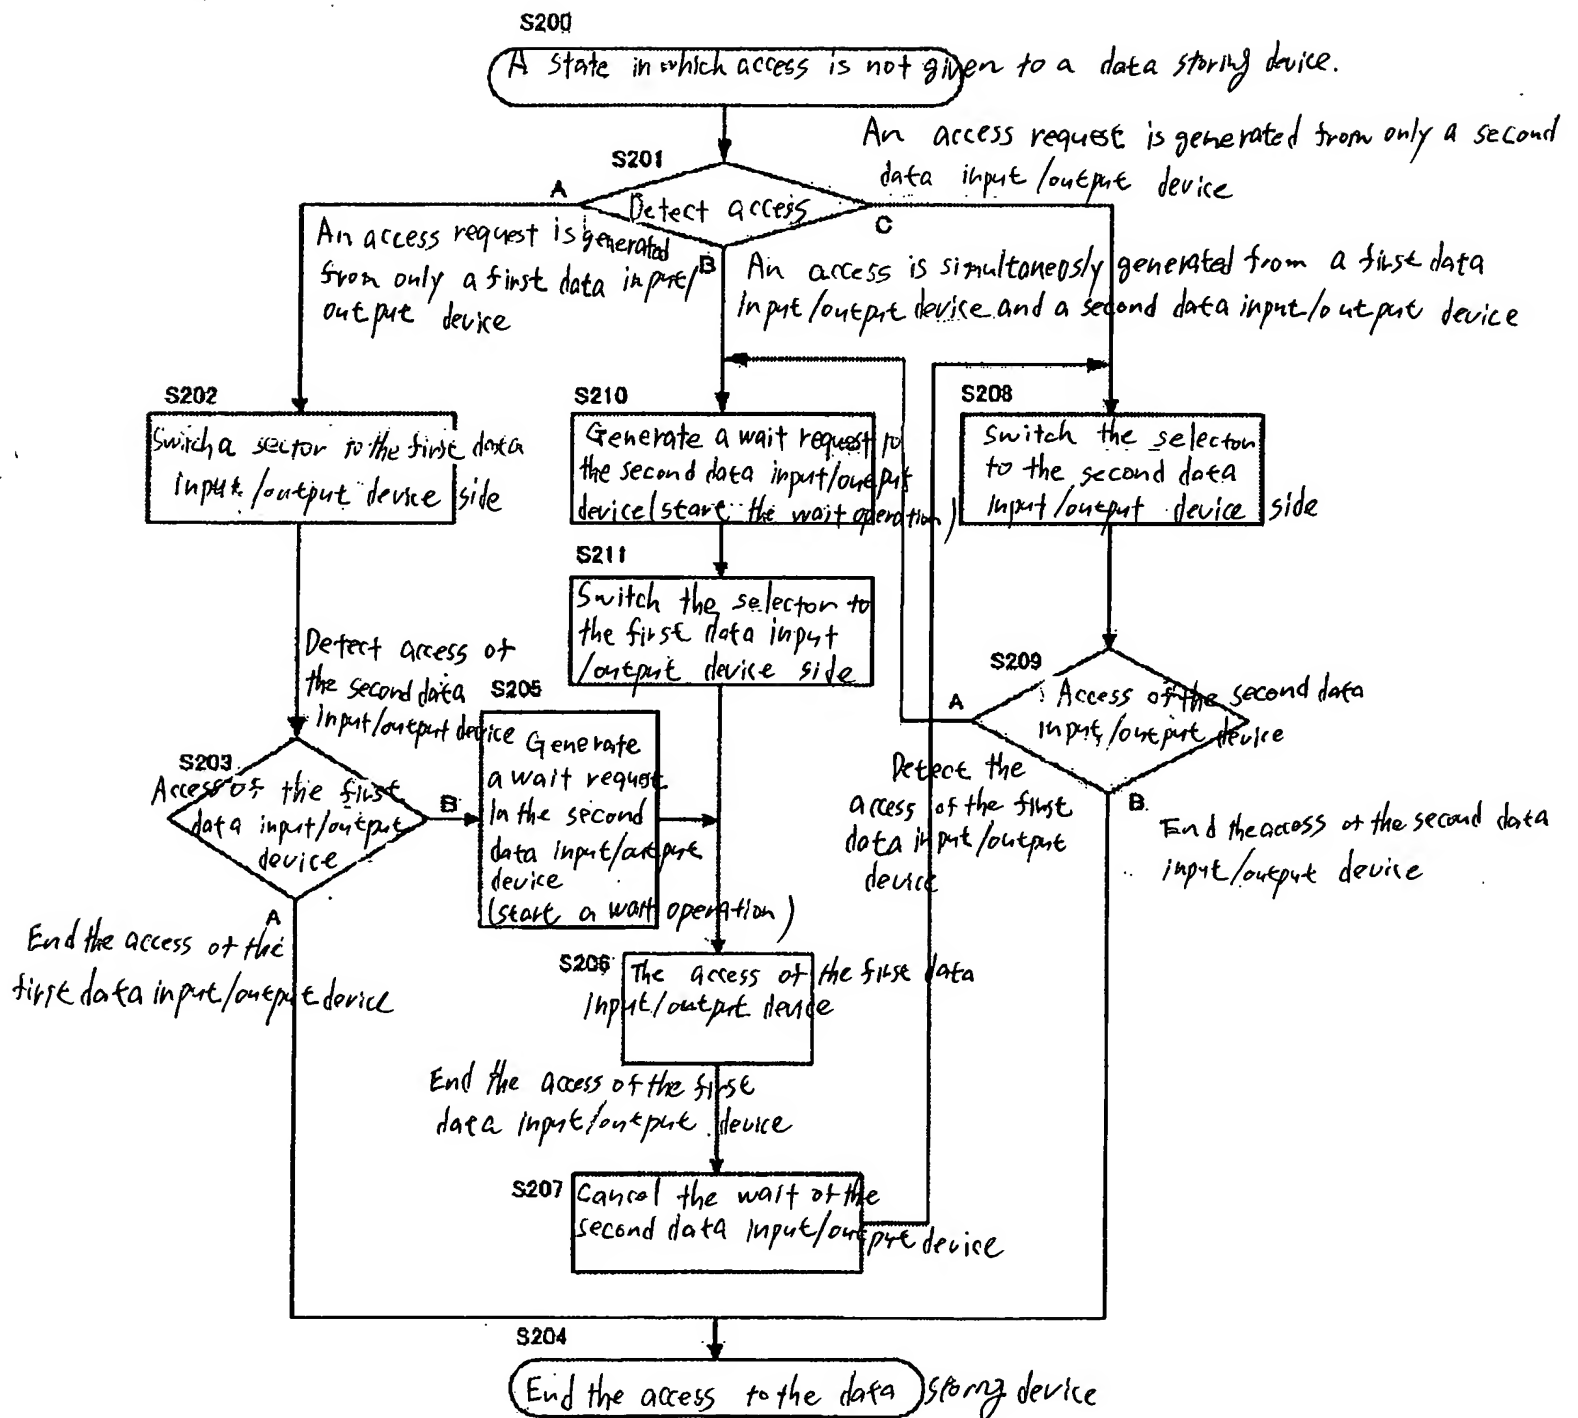 S200
A state in which access is not given to a data storing device.
An access request is generated from only a second
data input/output device
S201
Detect access
A
C
B
An access request is generated
from only a first data input/
output device
An access is simultaneosly generated from a first data
input/output device and a second data input/output device
S202
Switch a sector to the first data
input/output device side
S210
Generate a wait request to
the second data input/output
device (start the wait operation)
S208
Switch the selector
to the second data
input/output device side
S211
Switch the selector to
the first data input
/output device side
Detect access of
the second data
input/output device
S203
Access of the first
data input/output
device
B
A
S205
Generate
a wait request
in the second
data input/output
device
(start a wait operation)
S209
Access of the second data
input/output device
A
B
Detect the
access of the first
data input/output
device
End the access of the second data
input/output device
End the access of the
first data input/output device
S206
The access of the first data
input/output device
End the access of the first
data input/output device
S207
Cancel the wait of the
second data input/output device
S204
End the access to the data storing device